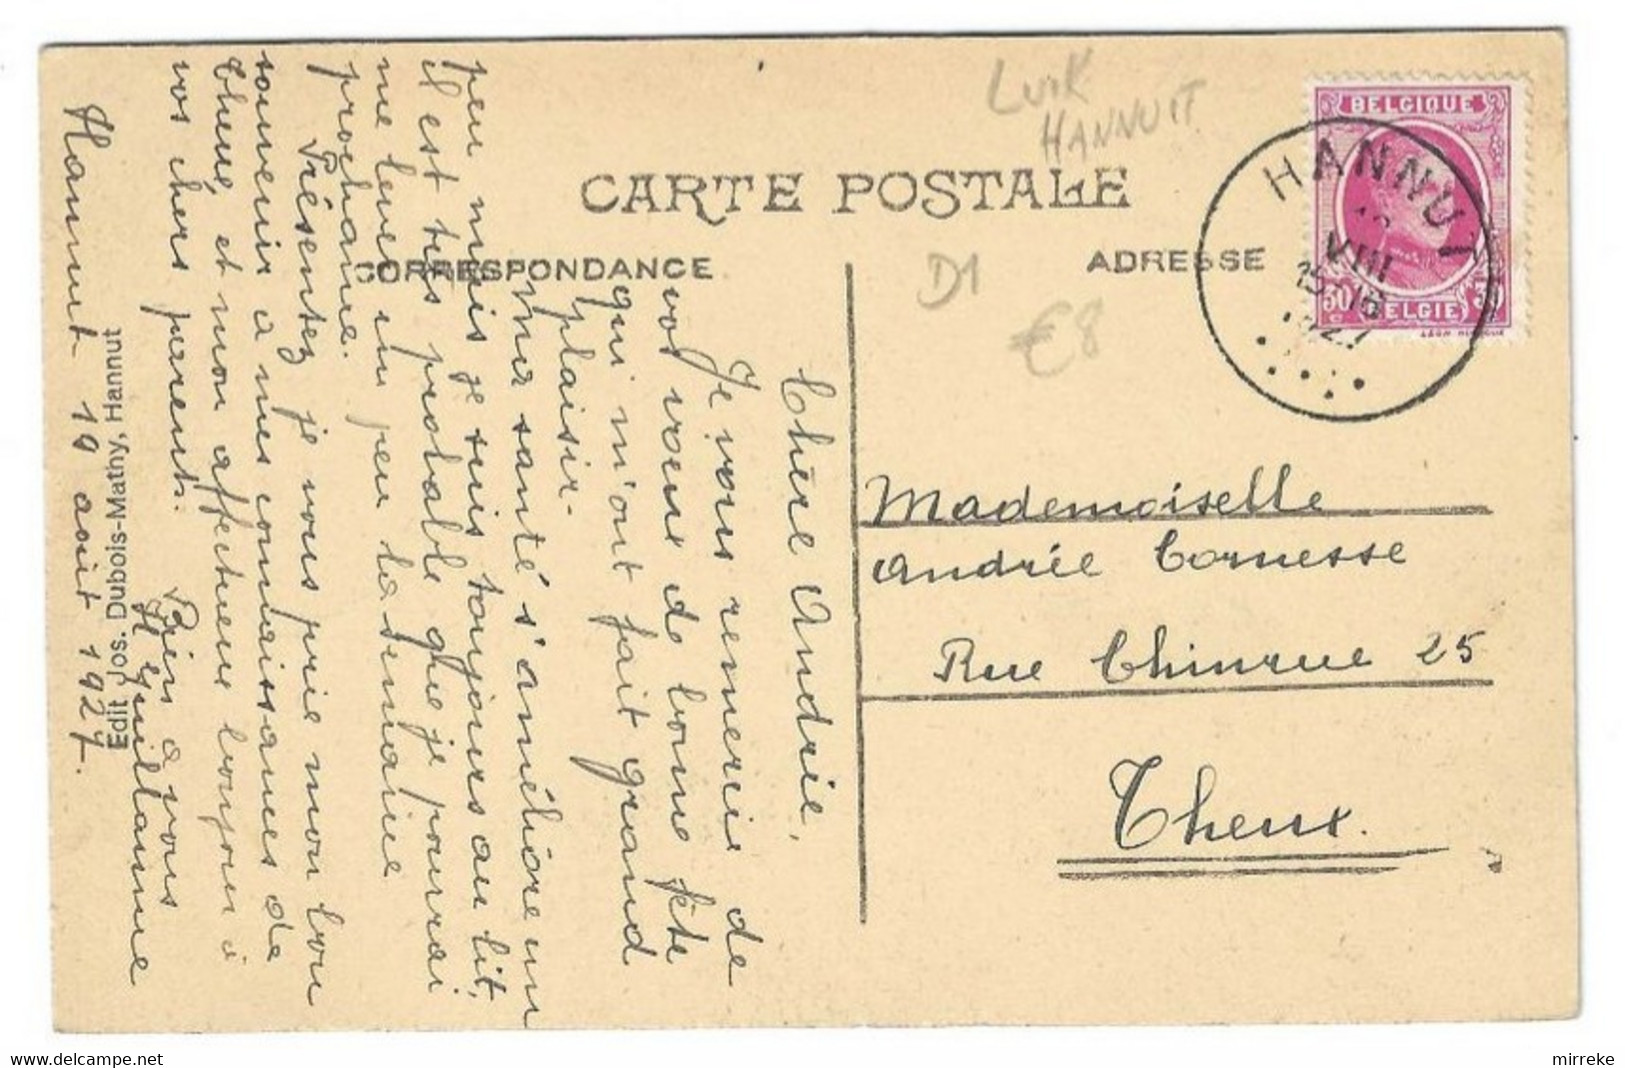 Luik
HANNUIT
CARTE POSTALE
CORRESPONDANCE
ADRESSE
D1
€8
BELGIQUE
30 BELGIE 30
HANNUT
VIII
15-16
Mademoiselle
Andrée Cornesse
Rue Chinrue 25
Theux.
Chère Andrée,
Je vous remercie de
vos vœux de bonne fête
qui m'ont fait grand
plaisir.
Ma santé s'améliore un
peu mais je suis toujours au lit,
il est très probable que je pourrai
me lever un peu la semaine
prochaine.
Présentez je vous prie mon bon
souvenir à mes connaissances de
Theux, et mon affectueux bonjour à
vos chers parents.
Bien à vous
H Guillaume
Hannut 19 août 1927.
Edit Jos. Dubois-Mathy, Hannut
www.delcampe.net
mirreke